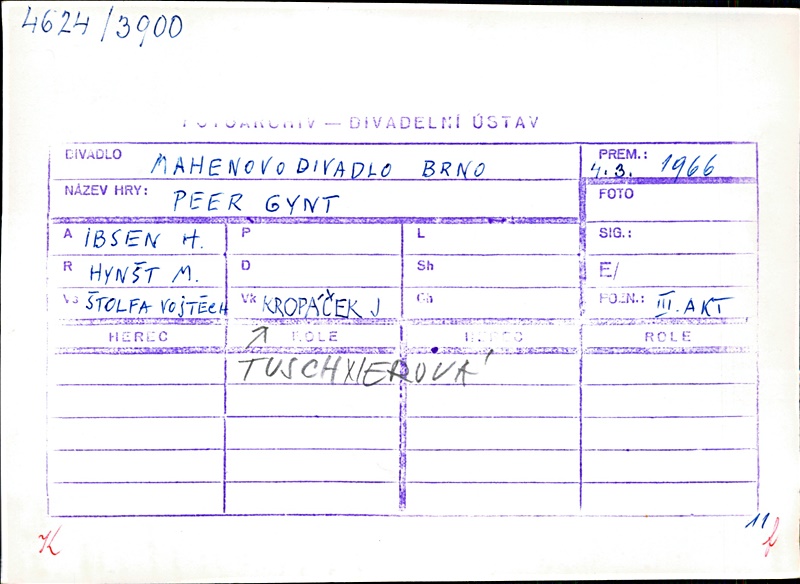 4624/3900
FOTOARCHIV — DIVADELNÍ ÚSTAV
DIVADLO MAHENOVO DIVADLO BRNO PREM.: 4.3. 1966
NÁZEV HRY: PEER GYNT FOTO
A IBSEN H. P L SIG.:
R HYNŠT M. D Sh E/
Vs ŠTOLFA VOJTĚCH Vk KROPÁČEK J Ch POZN.: III. AKT
HEREC ROLE HEREC ROLE
TUSCHXIEROVÁ
11
K